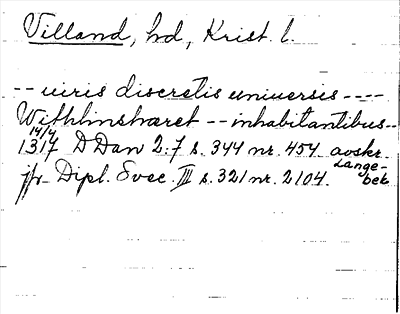 Villand, hd, Krist. l.
-- uiris discretis uniuersis ----
Withlinshæret -- inhabitantibus --
14/4
1317 D Dan 2.7 s. 344 nr. 454. avskr. Langebek
jfr Dipl. Svec. III s. 321 nr. 2104.